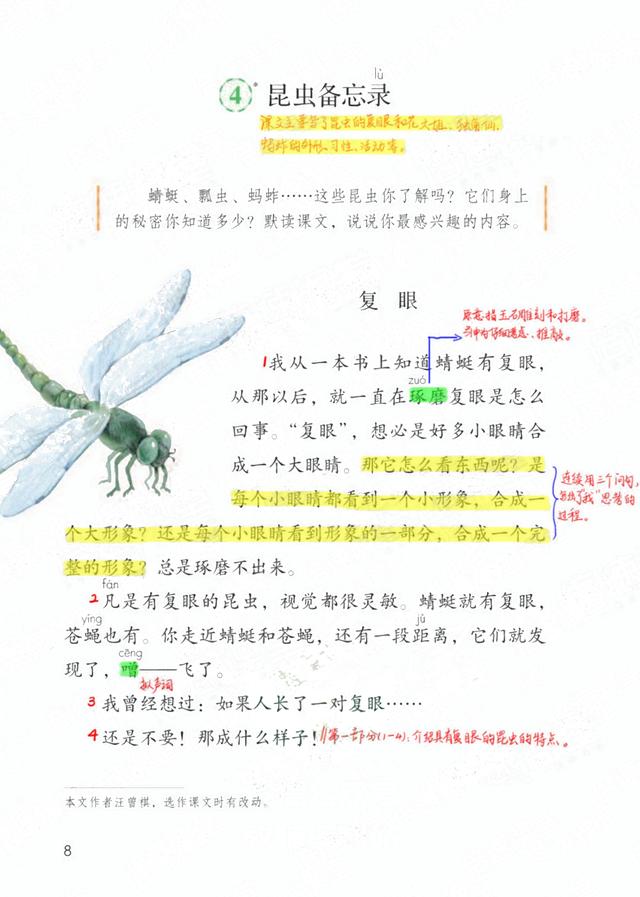 lù
4* 昆虫备忘录
课文主要写了昆虫的复眼和花大姐、独角仙、
蚂蚱的外形、习性、活动等。
蜻蜓、瓢虫、蚂蚱……这些昆虫你了解吗？它们身上
的秘密你知道多少？默读课文，说说你最感兴趣的内容。
复 眼
原意指玉石雕刻和打磨。
文中为仔细考虑、推敲。
1我从一本书上知道蜻蜓有复眼，
zuó
从那以后，就一直在琢磨复眼是怎么
回事。“复眼”，想必是好多小眼睛合
成一个大眼睛。那它怎么看东西呢？是
每个小眼睛都看到一个小形象，合成一
个大形象？还是每个小眼睛看到形象的一部分，合成一个完
整的形象？总是琢磨不出来。
连续用三个问句，
“我”思考的
过程。
fán
2凡是有复眼的昆虫，视觉都很灵敏。蜻蜓就有复眼，
yíng jù
苍蝇也有。你走近蜻蜓和苍蝇，还有一段距离，它们就发
cēng
现了，噌——飞了。
拟声词
3我曾经想过：如果人长了一对复眼……
4还是不要！那成什么样子！//第一部分(1-4)：介绍具有复眼的昆虫的特点。
本文作者汪曾祺，选作课文时有改动。
8